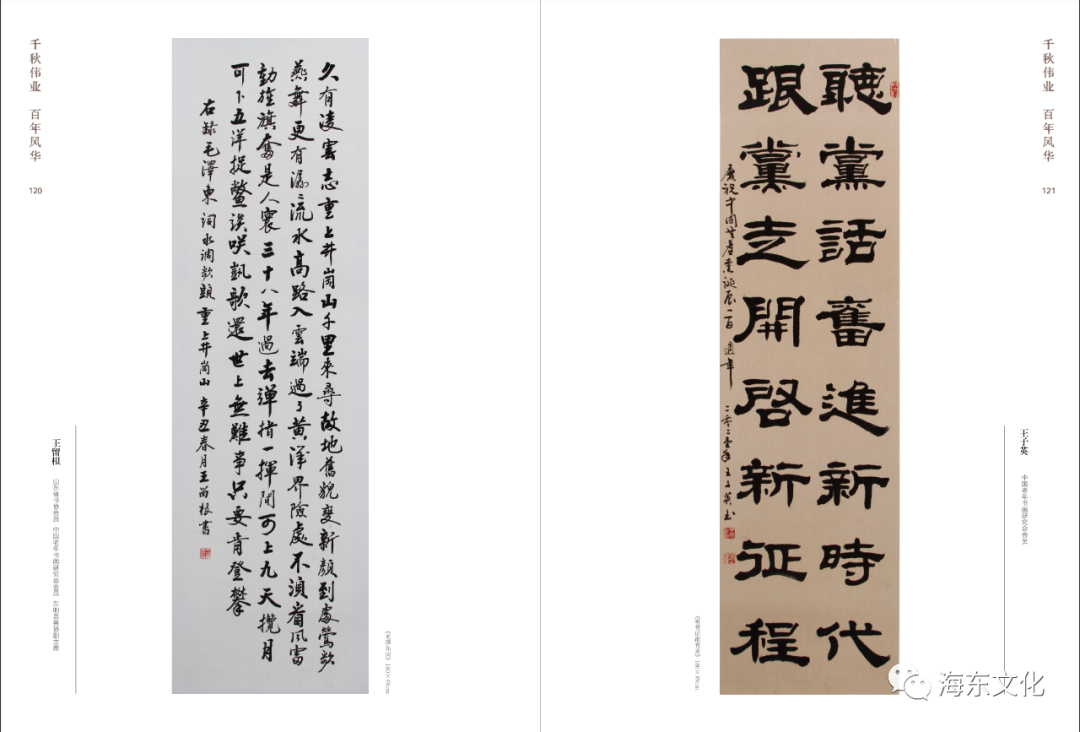 千秋伟业 百年风华
120
久有凌雲志重上井崗山千里來尋故地舊貌變新顏到處鶯歌
燕舞更有潺〻流水高路入雲端過了黃洋界險處不須看風雷
動旌旗奮是人寰三十八年過去彈指一揮間可上九天攬月
可下五洋捉鱉談笑凱歌還世上無難事只要肯登攀
右録毛澤東詞水調歌頭重上井崗山 辛丑春月王留根書
王留根
山东省书协会员 中国老年书画研究会会员 东明县美协副主席
180×49cm
千秋伟业 百年风华
121
聽黨話奮進新時代
跟黨走開啓新征程
慶祝中國共產黨誕辰一百週年 二零二一年王子英书
王子英
中国老年书画研究会会员
180×49cm
海东文化